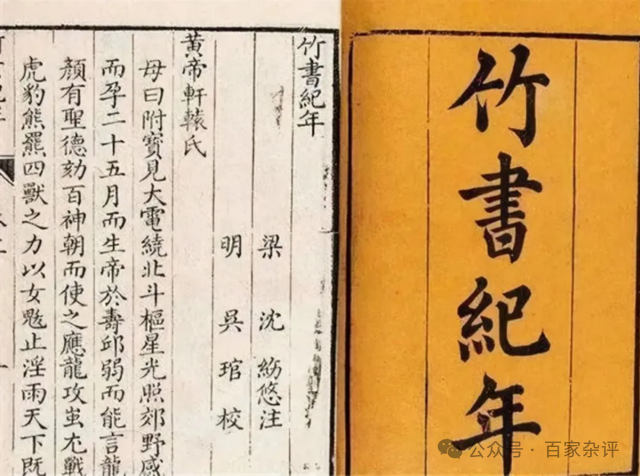 竹書紀年
竹書紀年
梁 沈 注
明 吳 琯 校
黃帝軒轅氏
母曰附寶見大電繞北斗樞星光照郊野感
而孕二十五月而生帝於壽邱弱而能言龍
顏有聖德劾百神朝而使之應龍攻蚩尤戰
虎豹熊羆四獸之力以女魃止淫雨天下既
公众号 · 百家杂评